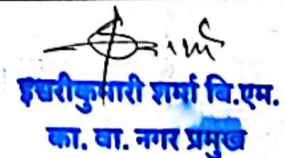 इश्वरीकुमारी शर्मा वि.एम.
का. वा. नगर प्रमुख